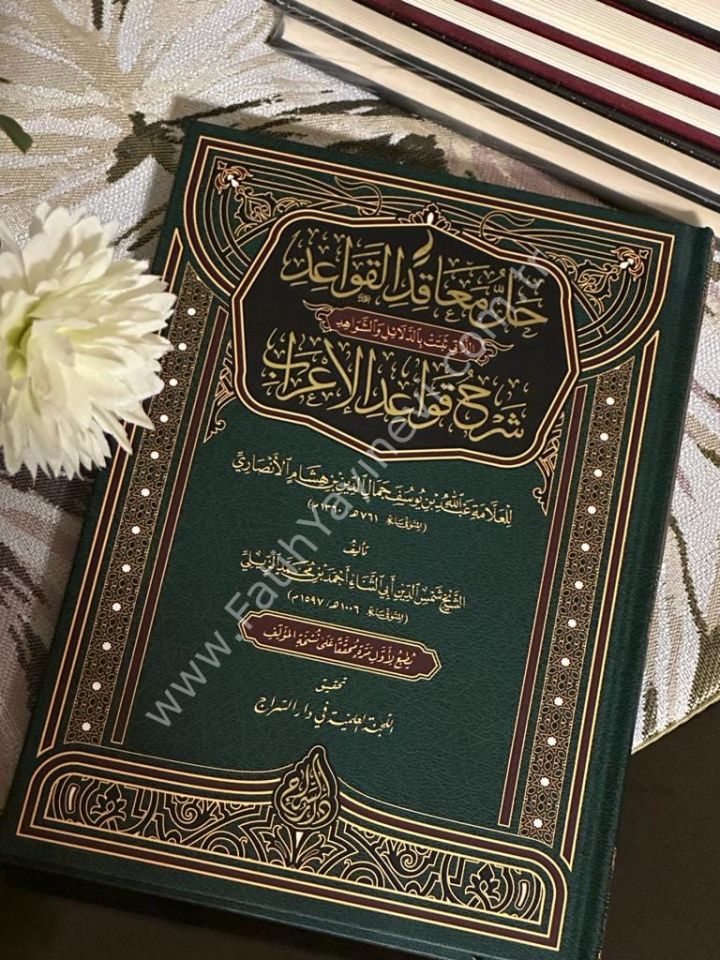 حل معاقد القواعد
اللاتي ثبتت بالدلائل والشواهد
شرح قواعد الإعراب
للعلامة عبد الله بن يوسف جمال الدين بن هشام الأنصاري
(المتوفى سنة ٧٦١هـ / ١٣٦٠م)
تأليف
الشيخ شمس الدين أبي الثناء أحمد بن محمد الزيلي
(المتوفى سنة ١٠٠٦هـ / ١٥٩٧م)
يطبع لأول مرة محققا على نسخة المؤلف
تحقيق
اللجنة العلمية في دار السراج
دار السراج
www.FatihYayinevi.com.tr